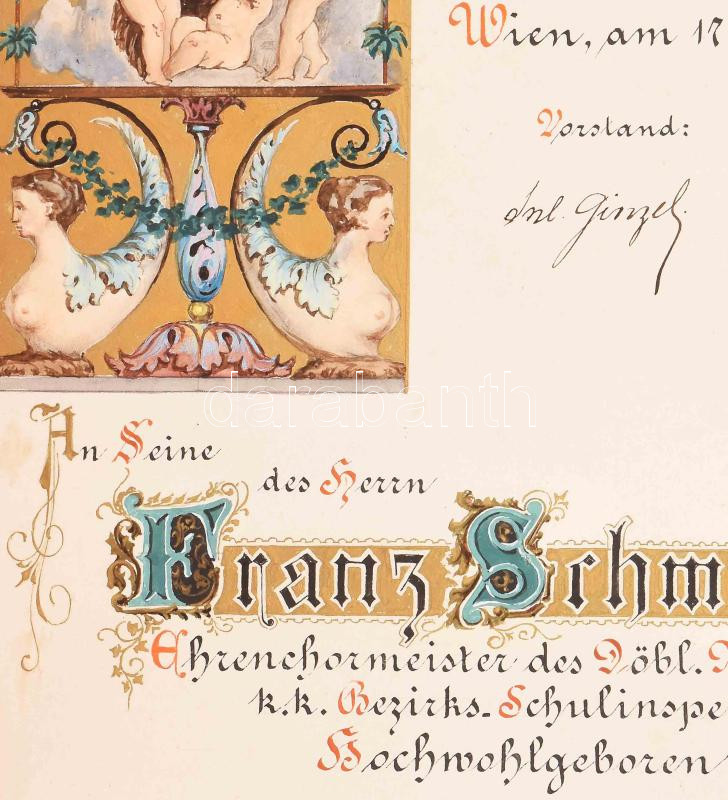 Wien, am 17
Vorstand:
Ginzel
darabanth
An Seine
des Herrn
Franz Schm
Ehrenchormeister des Döbl.
k.k. Bezirks-Schulinspe
Hochwohlgeboren